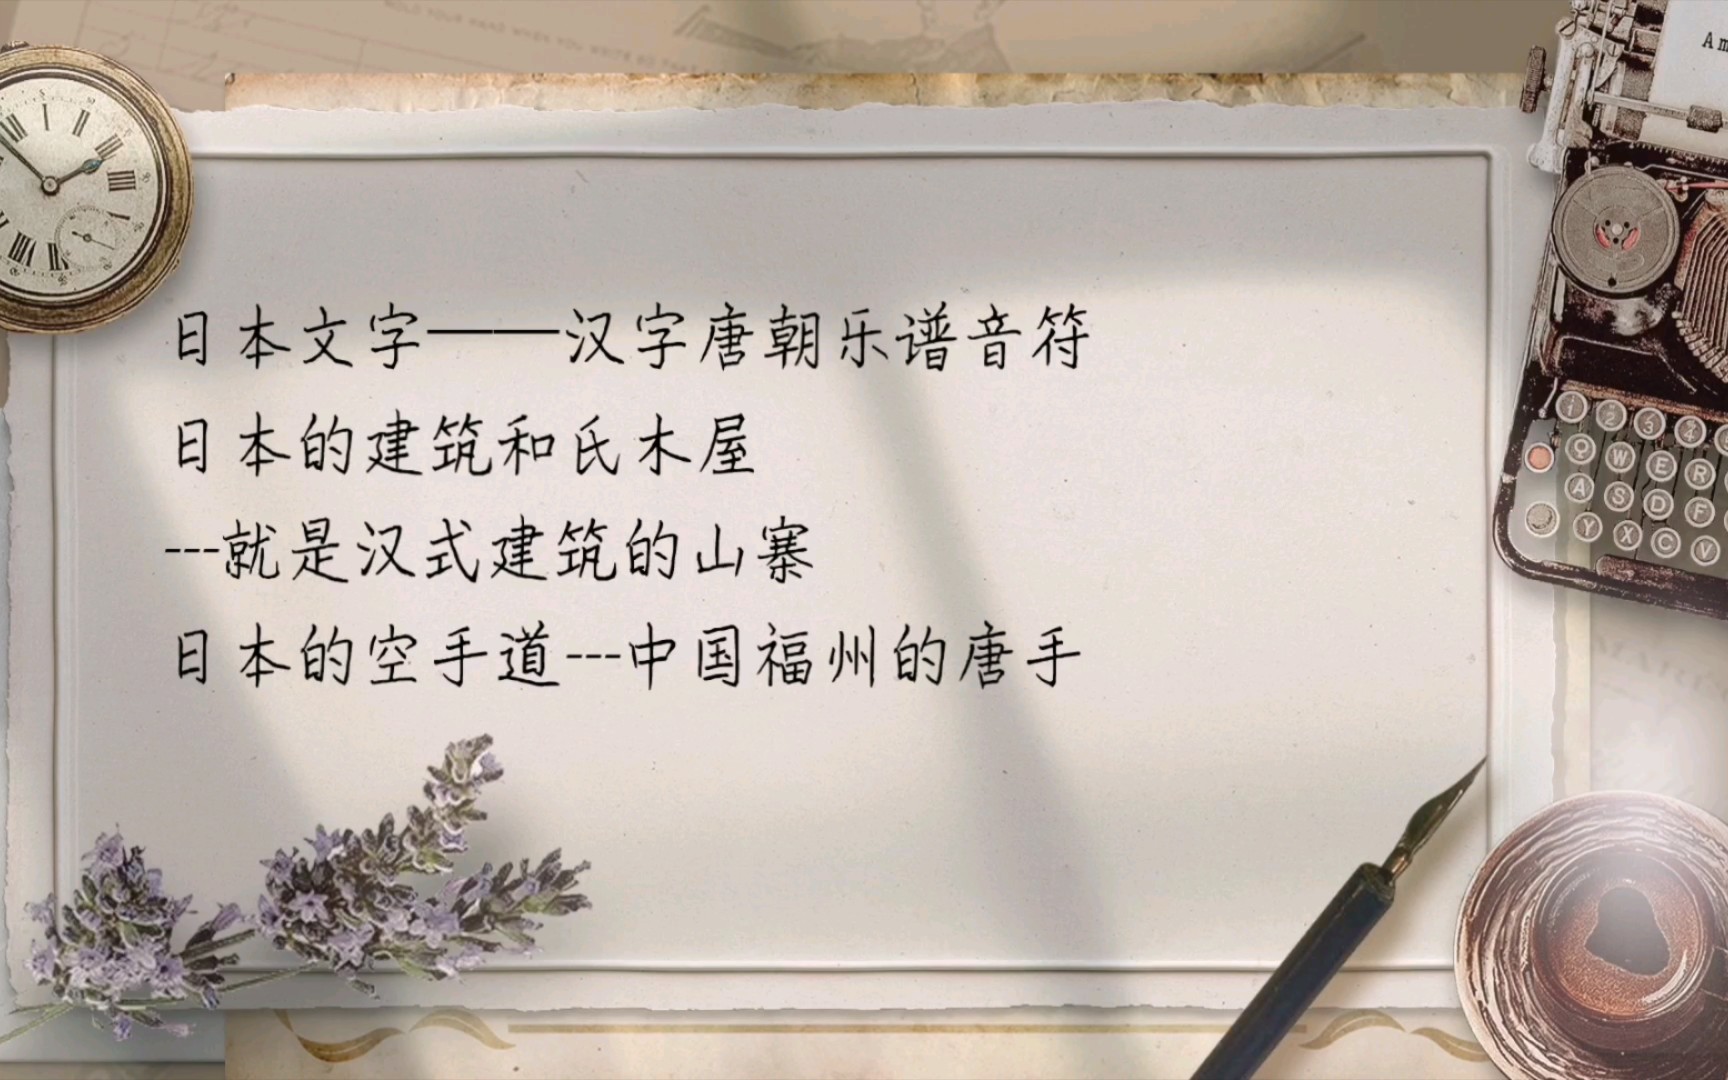 日本文字——汉字唐朝乐谱音符
日本的建筑和氏木屋
---就是汉式建筑的山寨
日本的空手道---中国福州的唐手